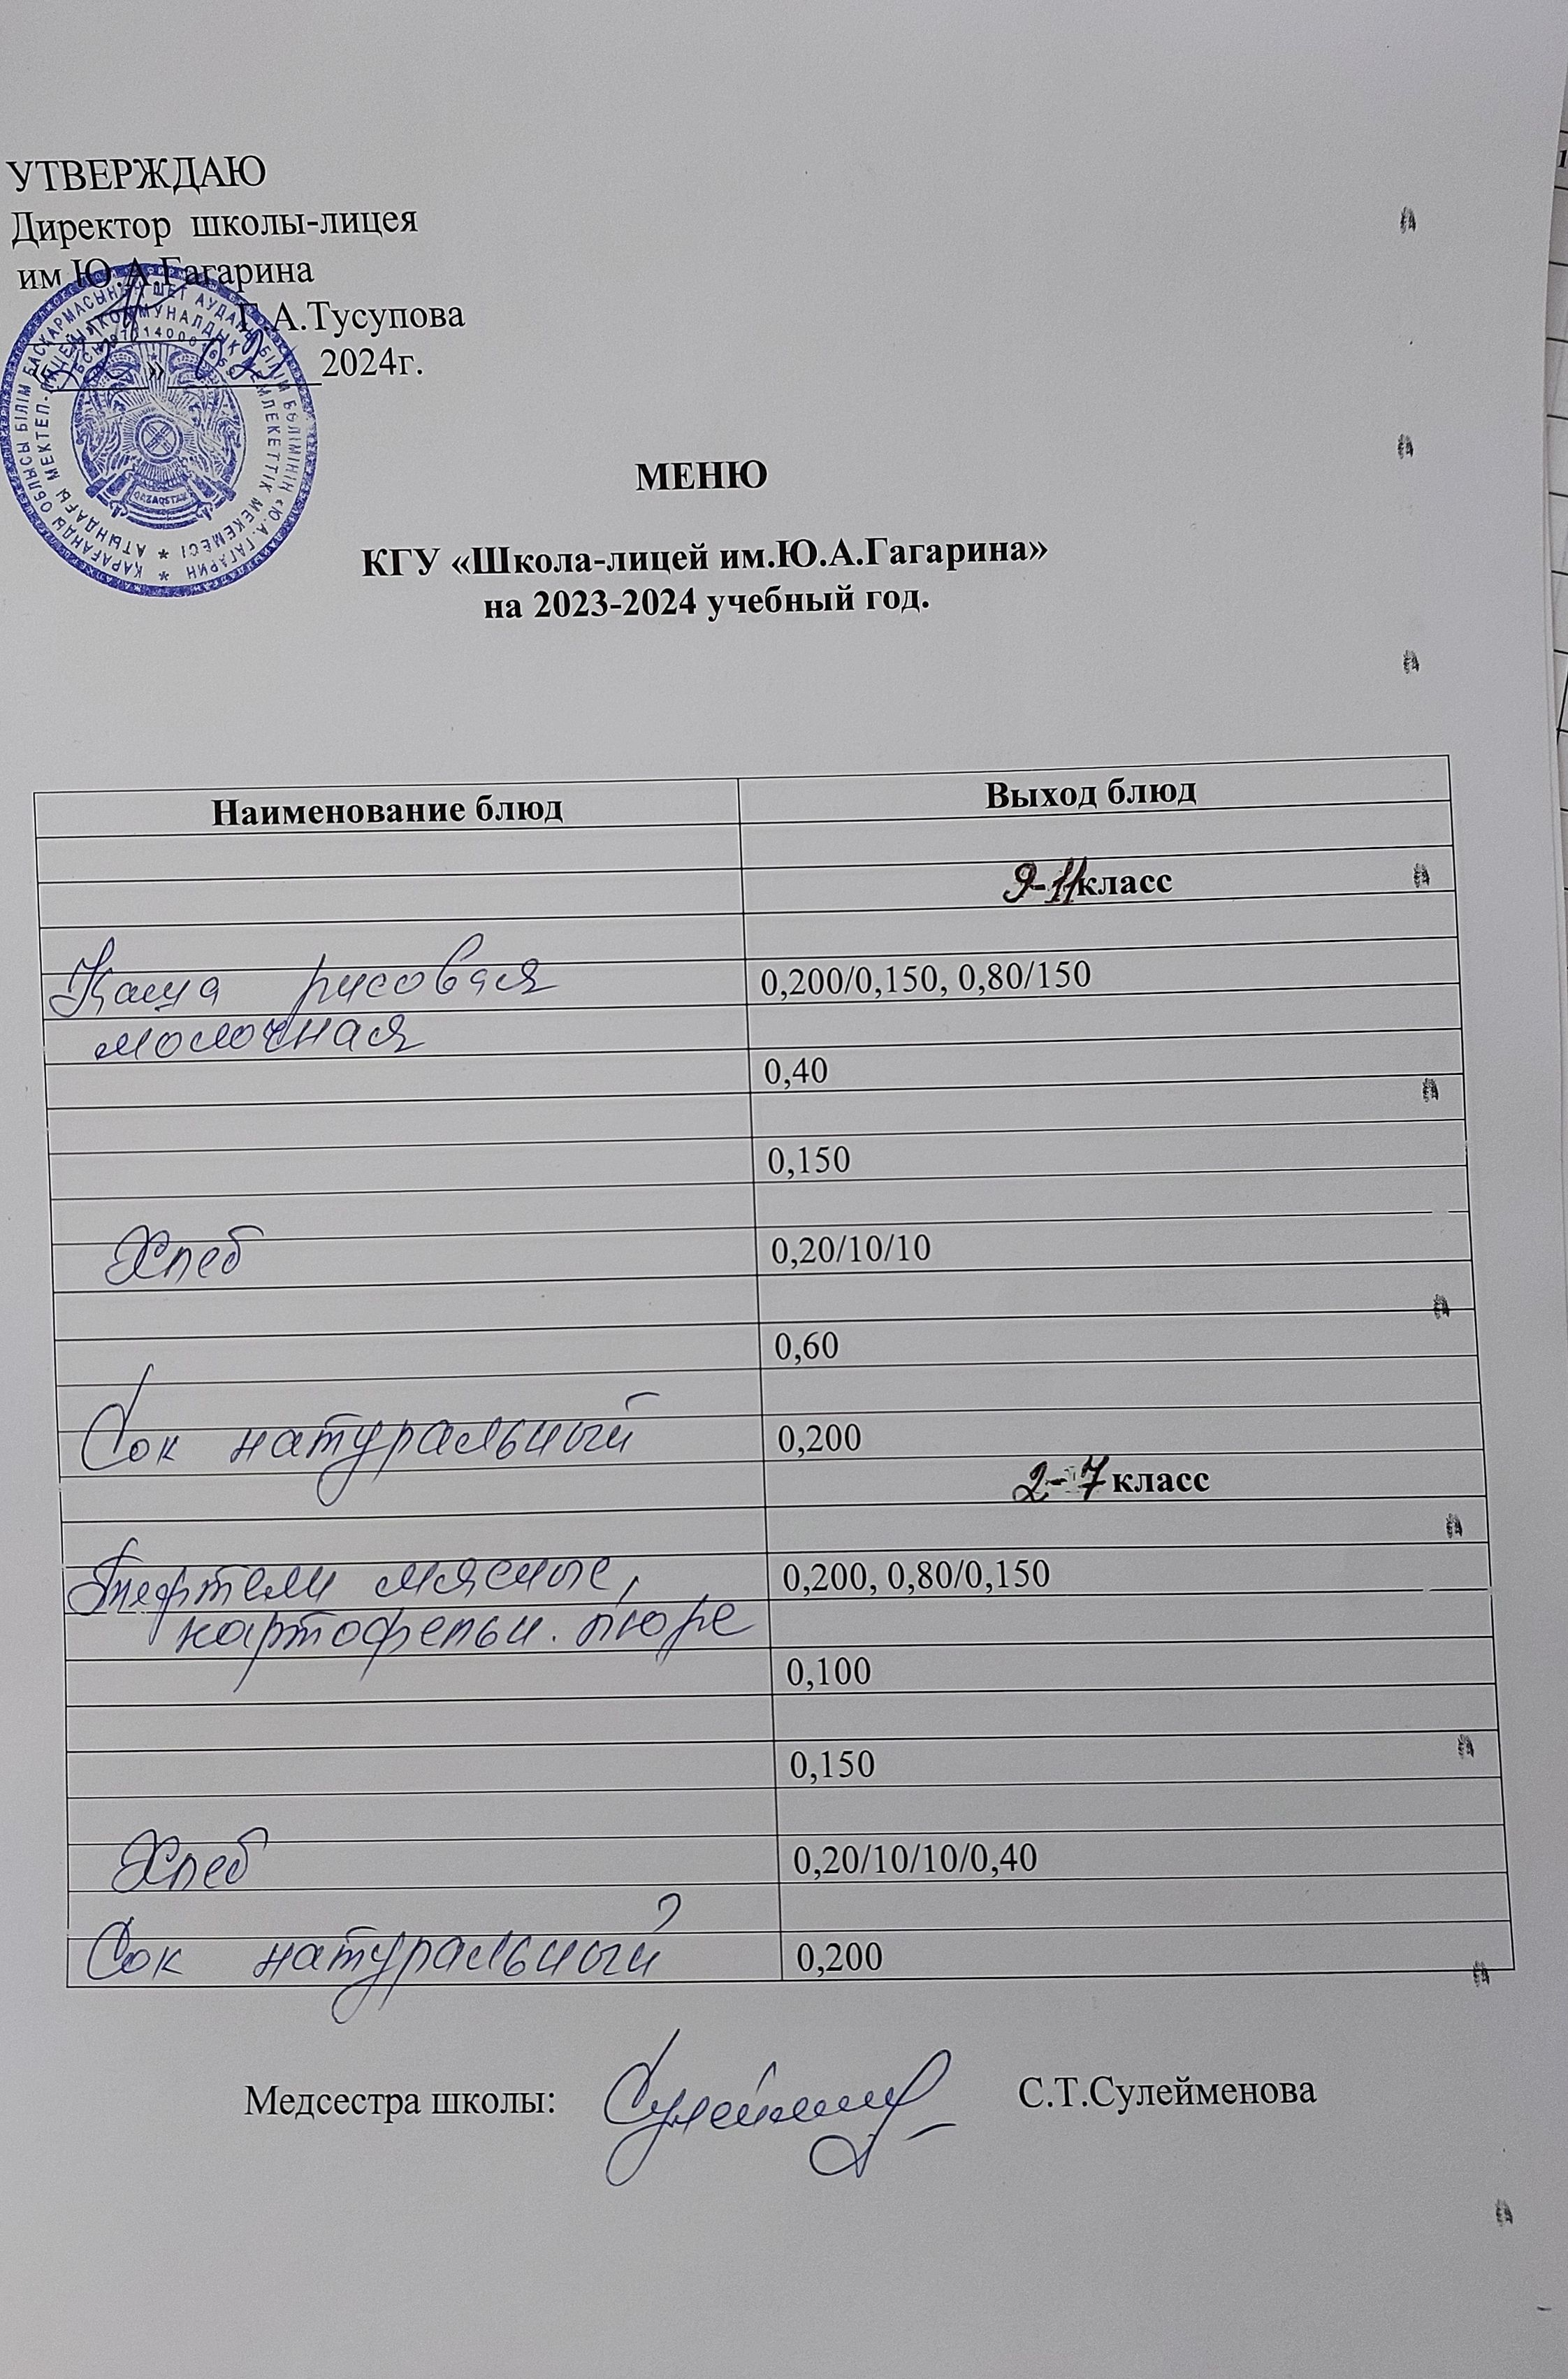 УТВЕРЖДАЮ
Директор школы-лицея
им Ю.А.Гагарина
Г.А.Тусупова
» 2024г.
QAZAQSTAN
МЕНЮ
КГУ «Школа-лицей им.Ю.А.Гагарина»
на 2023-2024 учебный год.
Наименование блюд Выход блюд
9-11 класс
Каша рисовая 0,200/0,150, 0,80/150
молочная
0,40
0,150
Хлеб 0,20/10/10
0,60
Сок натуральный 0,200
2-7 класс
Тефтели мясные, 0,200, 0,80/0,150
картофельн. пюре
0,100
0,150
Хлеб 0,20/10/10/0,40
Сок натуральный 0,200
Медсестра школы: С.Т.Сулейменова